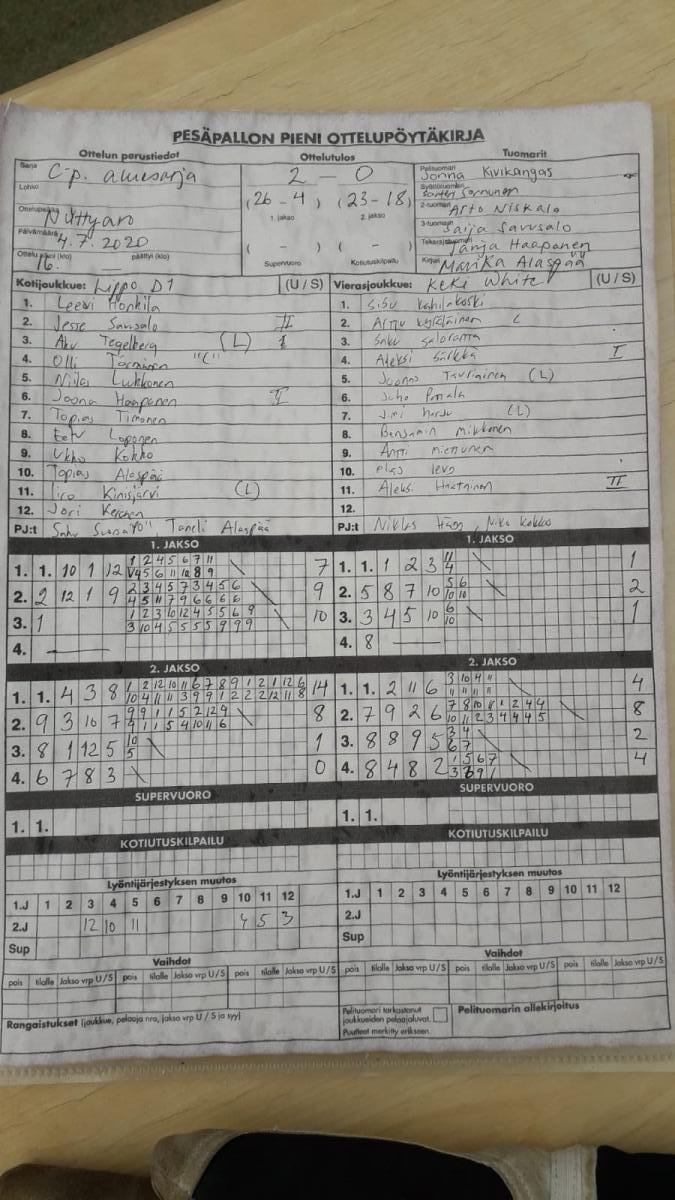 PESÄPALLON PIENI OTTELUPÖYTÄKIRJA
Ottelun perustiedot Ottelutulos Tuomarit
Sarja C-p. aluesarja
Lohko
Ottelupaikka Niittyaro
Päivämäärä 4.7.2020
Ottelu alkoi (klo) 16. päättyi (klo)
2 - 0
(26 - 4) (23 - 18)
1. jakso 2. jakso
( - ) ( - )
Supervuoro Kotiutuskilpailu
Pelituomari Jonna Kivikangas
Syöttötuomari Sornunen
2-tuomari Arto Niskala
3-tuomari Saija Savusalo
Takarajatuomari Tanja Haapanen
Kirjuri Marika Alaspää
Kotijoukkue: Lippo D1 (U / S)
1. Leevi Honkila
2. Jesse Sausalo II
3. Aku Tegelberg (L) 1
4. Olli Törmänen "C"
5. Niilas Luikkonen
6. Joona Haapanen
7. Topias Timonen
8. Eetu Loponen
9. Ukko Kokko
10. Topias Alaspää
11. Iiro Kinisjärvi (L)
12. Jori
PJ:t Taneli Alaspää
Vierasjoukkue: Keki White (U / S)
1. Sisu Kahilakoski
2. Arttu
3. Saku Saloranta
4. Aleksi Särkkä I
5. Tauriainen (L)
6. Juho
7. Jimi Harju (L)
8. Benjamin Mikkonen
9. Antti Miettunen
10. levo
11. Aleksi II
12.
PJ:t Niklas , Nika Kokko
1. JAKSO
1. 1. 10 1 12 7
1 2 4 5 6 7 11
4 5 6 11 10 8 9
2. 2 12 1 9 9
2 3 4 5 7 3 4 5 6
4 5 11 7 9 6 6 6 6
3. 1 10
1 2 3 10 12 4 5 5 6 9
3 10 4 5 5 5 5 9 9 9
4.
1. JAKSO
1. 1. 1 2 3 1
11
4
2. 5 8 7 10 2
5 6
10 10
3. 3 4 5 10 1
6
10
4. 8
2. JAKSO
1. 1. 4 3 8 14
1 2 12 10 11 6 7 8 9 1 2 1 12 6
10 4 11 11 3 9 9 1 2 2 2 12 11 8
2. 9 3 10 7 8
9 9 1 1 5 2 12 9
1 1 5 4 10 11 6
3. 8 1 12 5 1
10
5
4. 6 7 8 3 0
2. JAKSO
1. 1. 2 11 6 4
3 10 4 11
11 11 11 11
2. 7 9 2 6 8
7 8 10 11 1 2 4 4
10 11 2 3 4 4 4 5
3. 8 8 9 5 2
3 4
6 7
4. 8 4 8 2 4
1 5 6 7
SUPERVUORO
1. 1.
SUPERVUORO
1. 1.
KOTIUTUSKILPAILU
KOTIUTUSKILPAILU
Lyöntijärjestyksen muutos
1.J 1 2 3 4 5 6 7 8 9 10 11 12
2.J 12 10 11 4 5 3
Sup
Lyöntijärjestyksen muutos
1.J 1 2 3 4 5 6 7 8 9 10 11 12
2.J
Sup
Vaihdot
pois tilalle Jakso vrp U / S pois tilalle Jakso vrp U / S pois tilalle Jakso vrp U / S
Vaihdot
pois tilalle Jakso vrp U / S pois tilalle Jakso vrp U / S pois tilalle Jakso vrp U / S
Rangaistukset (joukkue, pelaaja nro, jakso vrp U / S ja syy)
Pelituomari tarkastanut
joukkueiden pelaajaluvat.
Puutteet merkitty erikseen.
Pelituomarin allekirjoitus